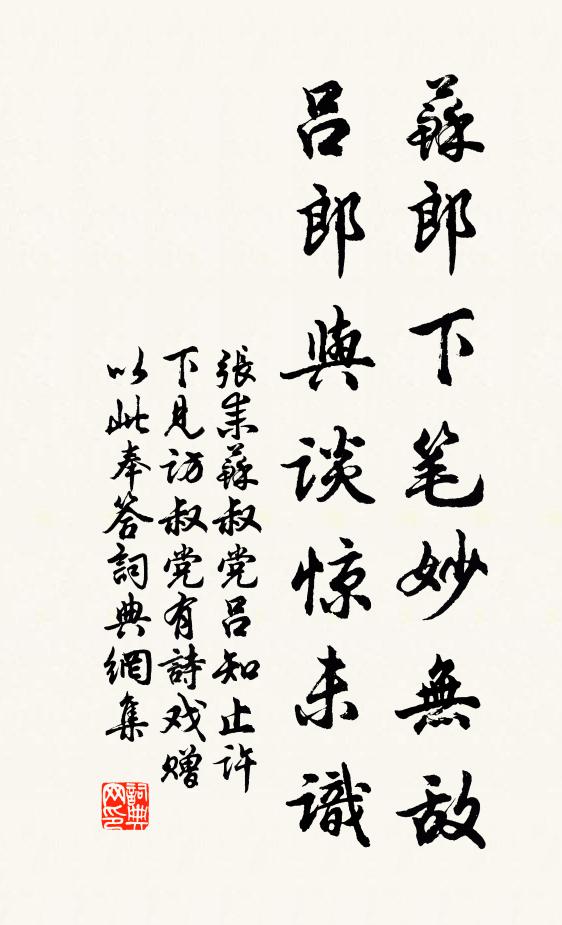 蘇郎下笔妙無敌
吕郎與談惊未識
張耒蘇叔党吕知止許
下見訪叔党有詩戏赠
以此奉答詞典網集
詞典
网印